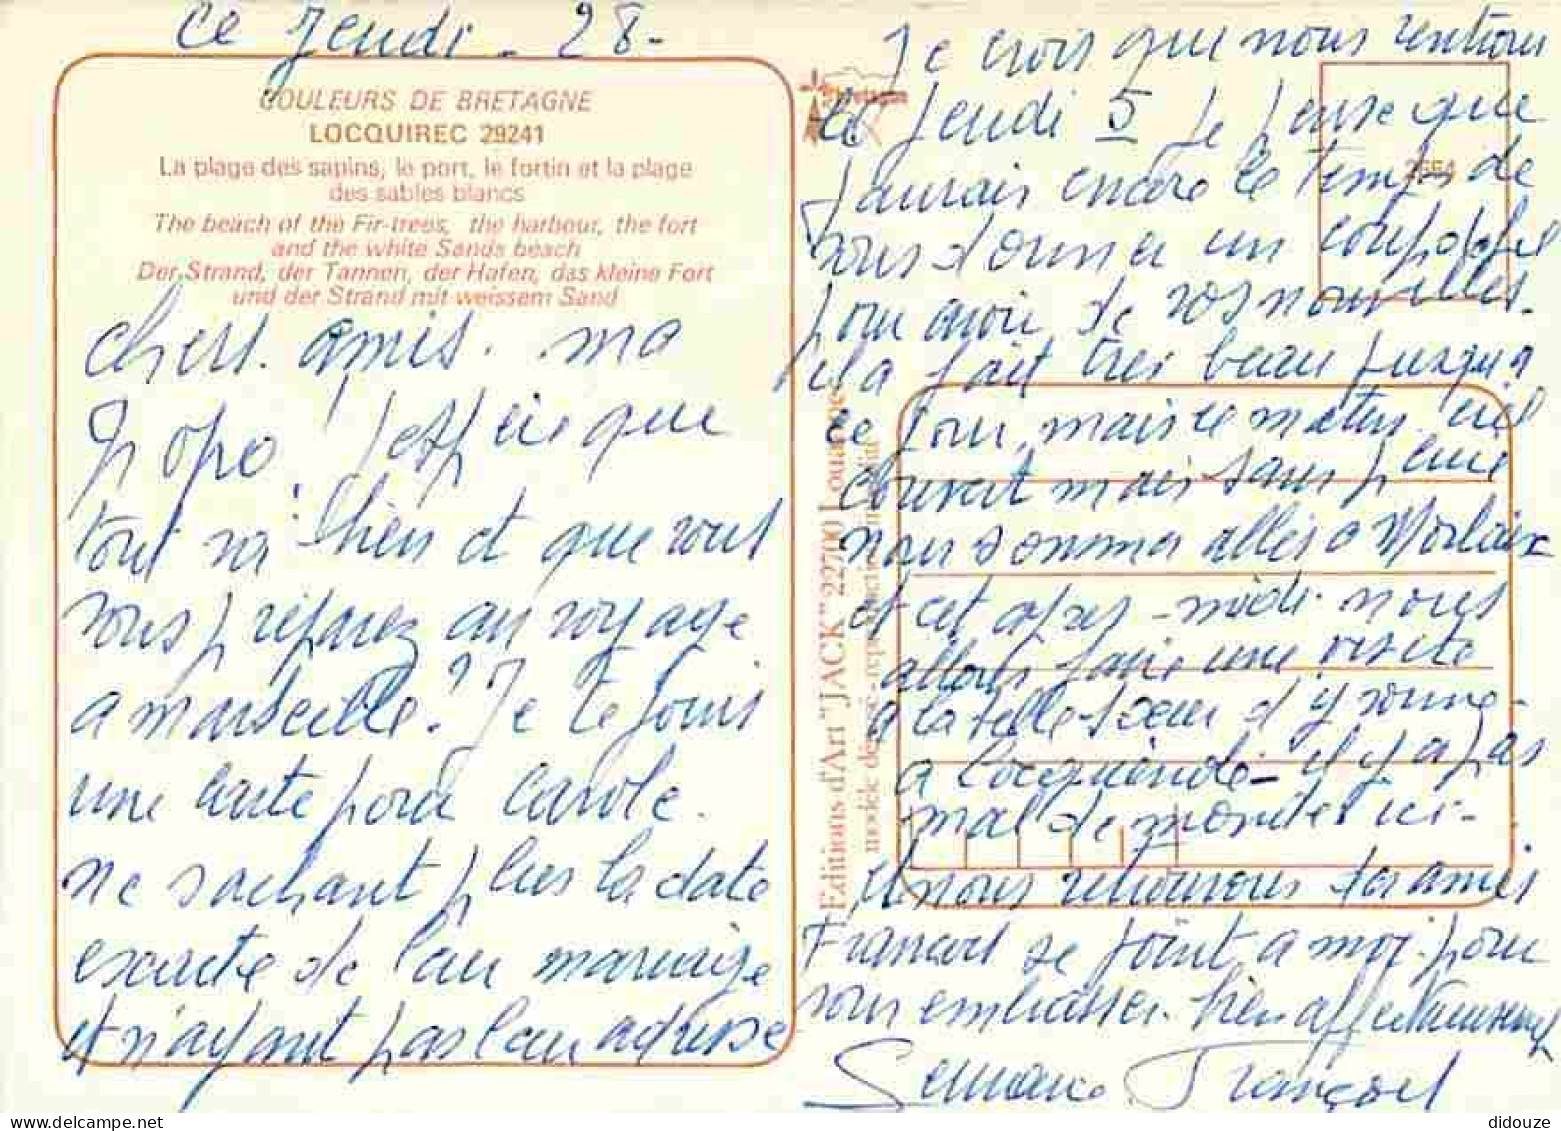 ce Jeudi - 28 -
COULEURS DE BRETAGNE
LOCQUIREC 29241
La plage des sapins, le port, le fortin et la plage
des sables blancs
The beach of the Fir-trees, the harbour, the fort
and the white Sands beach
Der Strand, der Tannen, der Hafen, das kleine Fort
und der Strand mit weissem Sand
chers. amis. ma
popo. J'espère que
tout va bien et que vous
vous préparez au voyage
a marseille? Je te joins
une carte pour Carole.
ne sachant plus la date
exacte de leur mariage
et n'ayant pas leur adresse
Editions d'Art "JACK" 22700 Louannec
modèle déposé - reproduction interdite
Je crois que nous rentrons
le Jeudi 5 Je pense que
J'aurais encore le temps de
vous donner un coup de fil
pour avoir de vos nouvelles.
il a fait très beau jusqu'a
ce jour, mais ce matin ciel
couvert mais sans pluie
nous sommes allés a Morlaix
et cet après-midi nous
allons faire une visite
a la belle-soeur d'yvonne -
a Locquénolé - il y a pas
mal de monde ici -
nous retrouvons les amis
François se joint a moi pour
vous embrasser. bien affectueusement
François
didouze